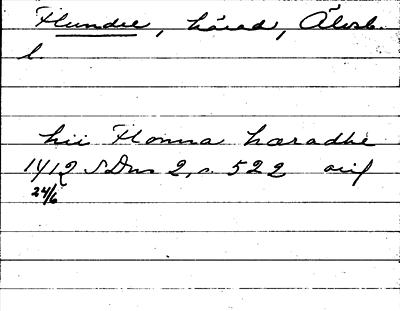 Flundre, härad, Älvsb.
l.
hii Flonna hæradhe
1412 SDns 2, s. 522 orig
24/6